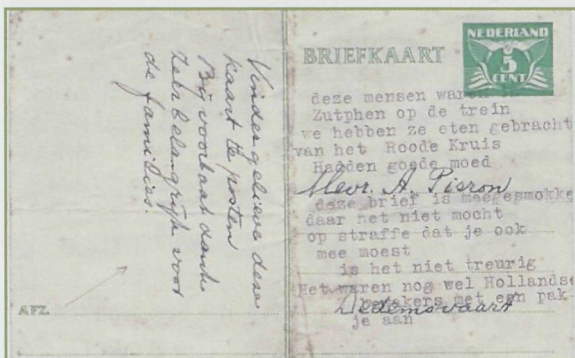 Vinder gelieve deze
kaart te posten
Bij voorbaat dank
Zeer belangrijk voor
de families.
AFZ.
BRIEFKAART
NEDERLAND
5
CENT
deze mensen war
Zutphen op de trein
we hebben ze eten gebracht
van het Roode Kruis
Hadden goede moed
Mevr. A. Pieron
deze brief is meegesmokke
daar het niet mocht
op straffe dat je ook
mee moest
is het niet treurig
Het waren nog wel Hollandse
met een pak
Dedemsvaart
je aan